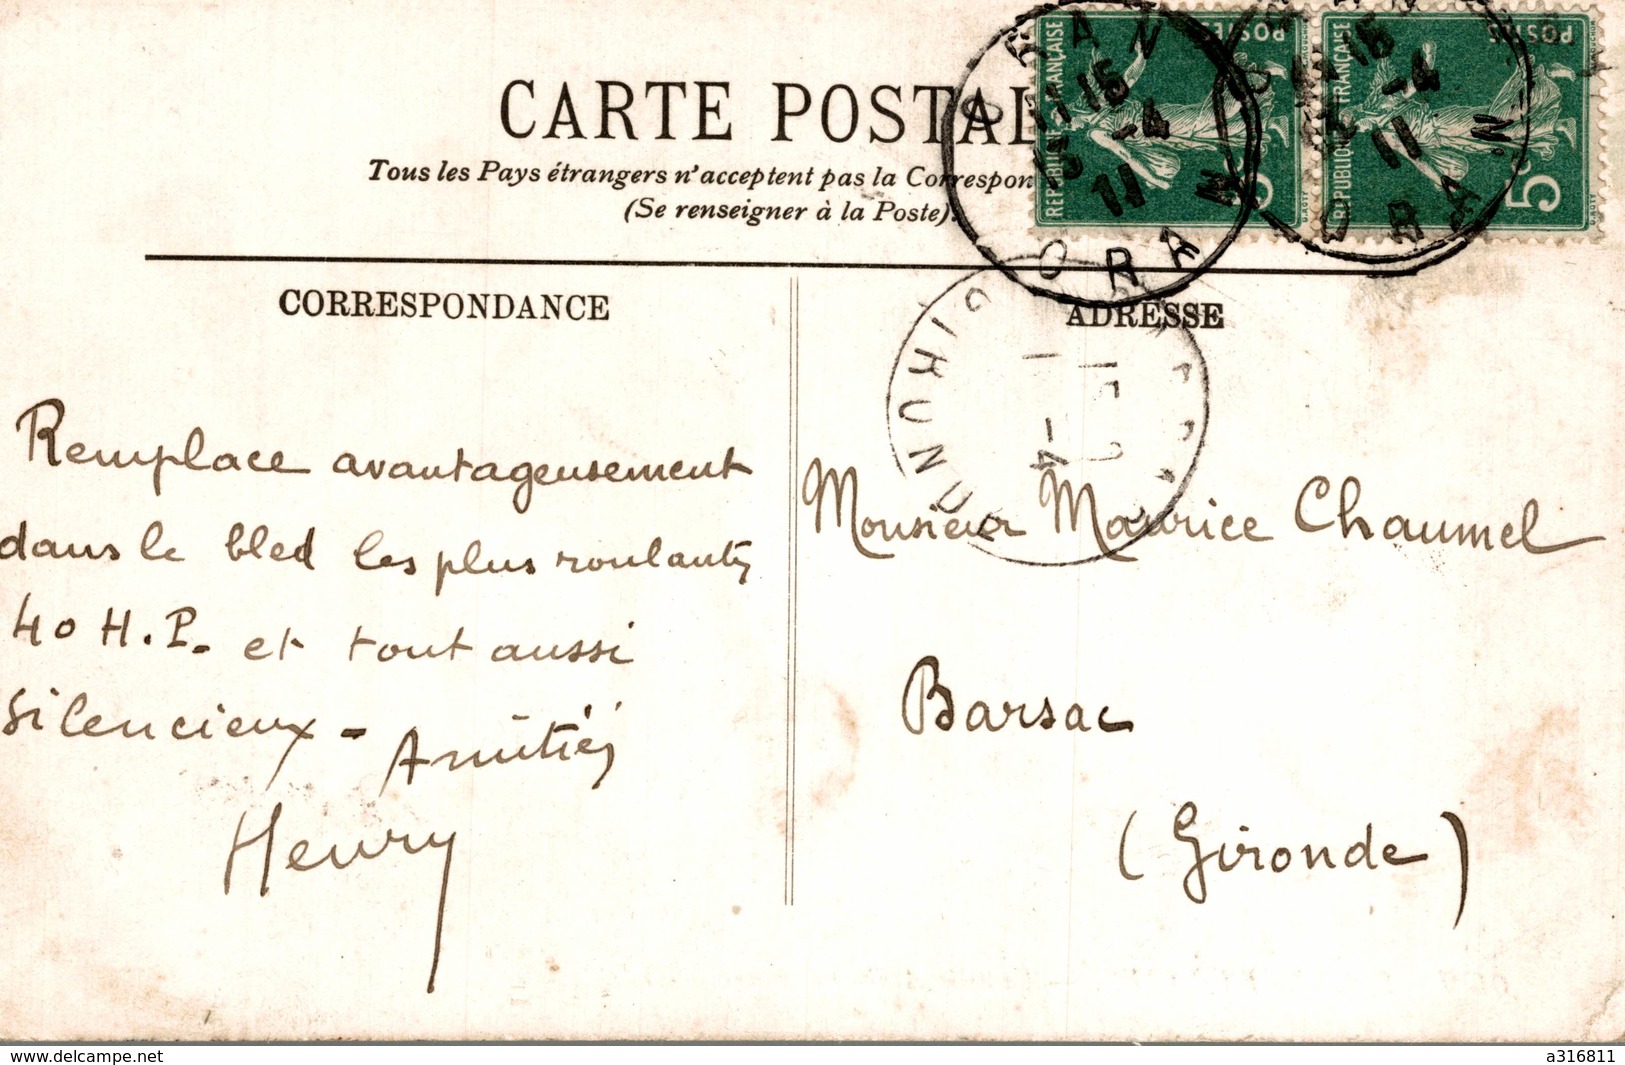 CARTE POSTAL
Tous les Pays étrangers n'acceptent pas la Correspon
(Se renseigner à la Poste).
RÉPUBLIQUE FRANÇAISE
POSTES
5c
RÉPUBLIQUE FRANÇAISE
POSTES
5c
ORAN
15 -4
11
ORAN
15 -4
11
ORAN
CORRESPONDANCE
ADRESSE
Remplace avantageusement
dans le bled les plus roulantes
40 H.P. et tout aussi
silencieux - Amitiés
Henry
Monsieur Maurice Chaumel
Barsac
(Gironde)
www.delcampe.net
a316811